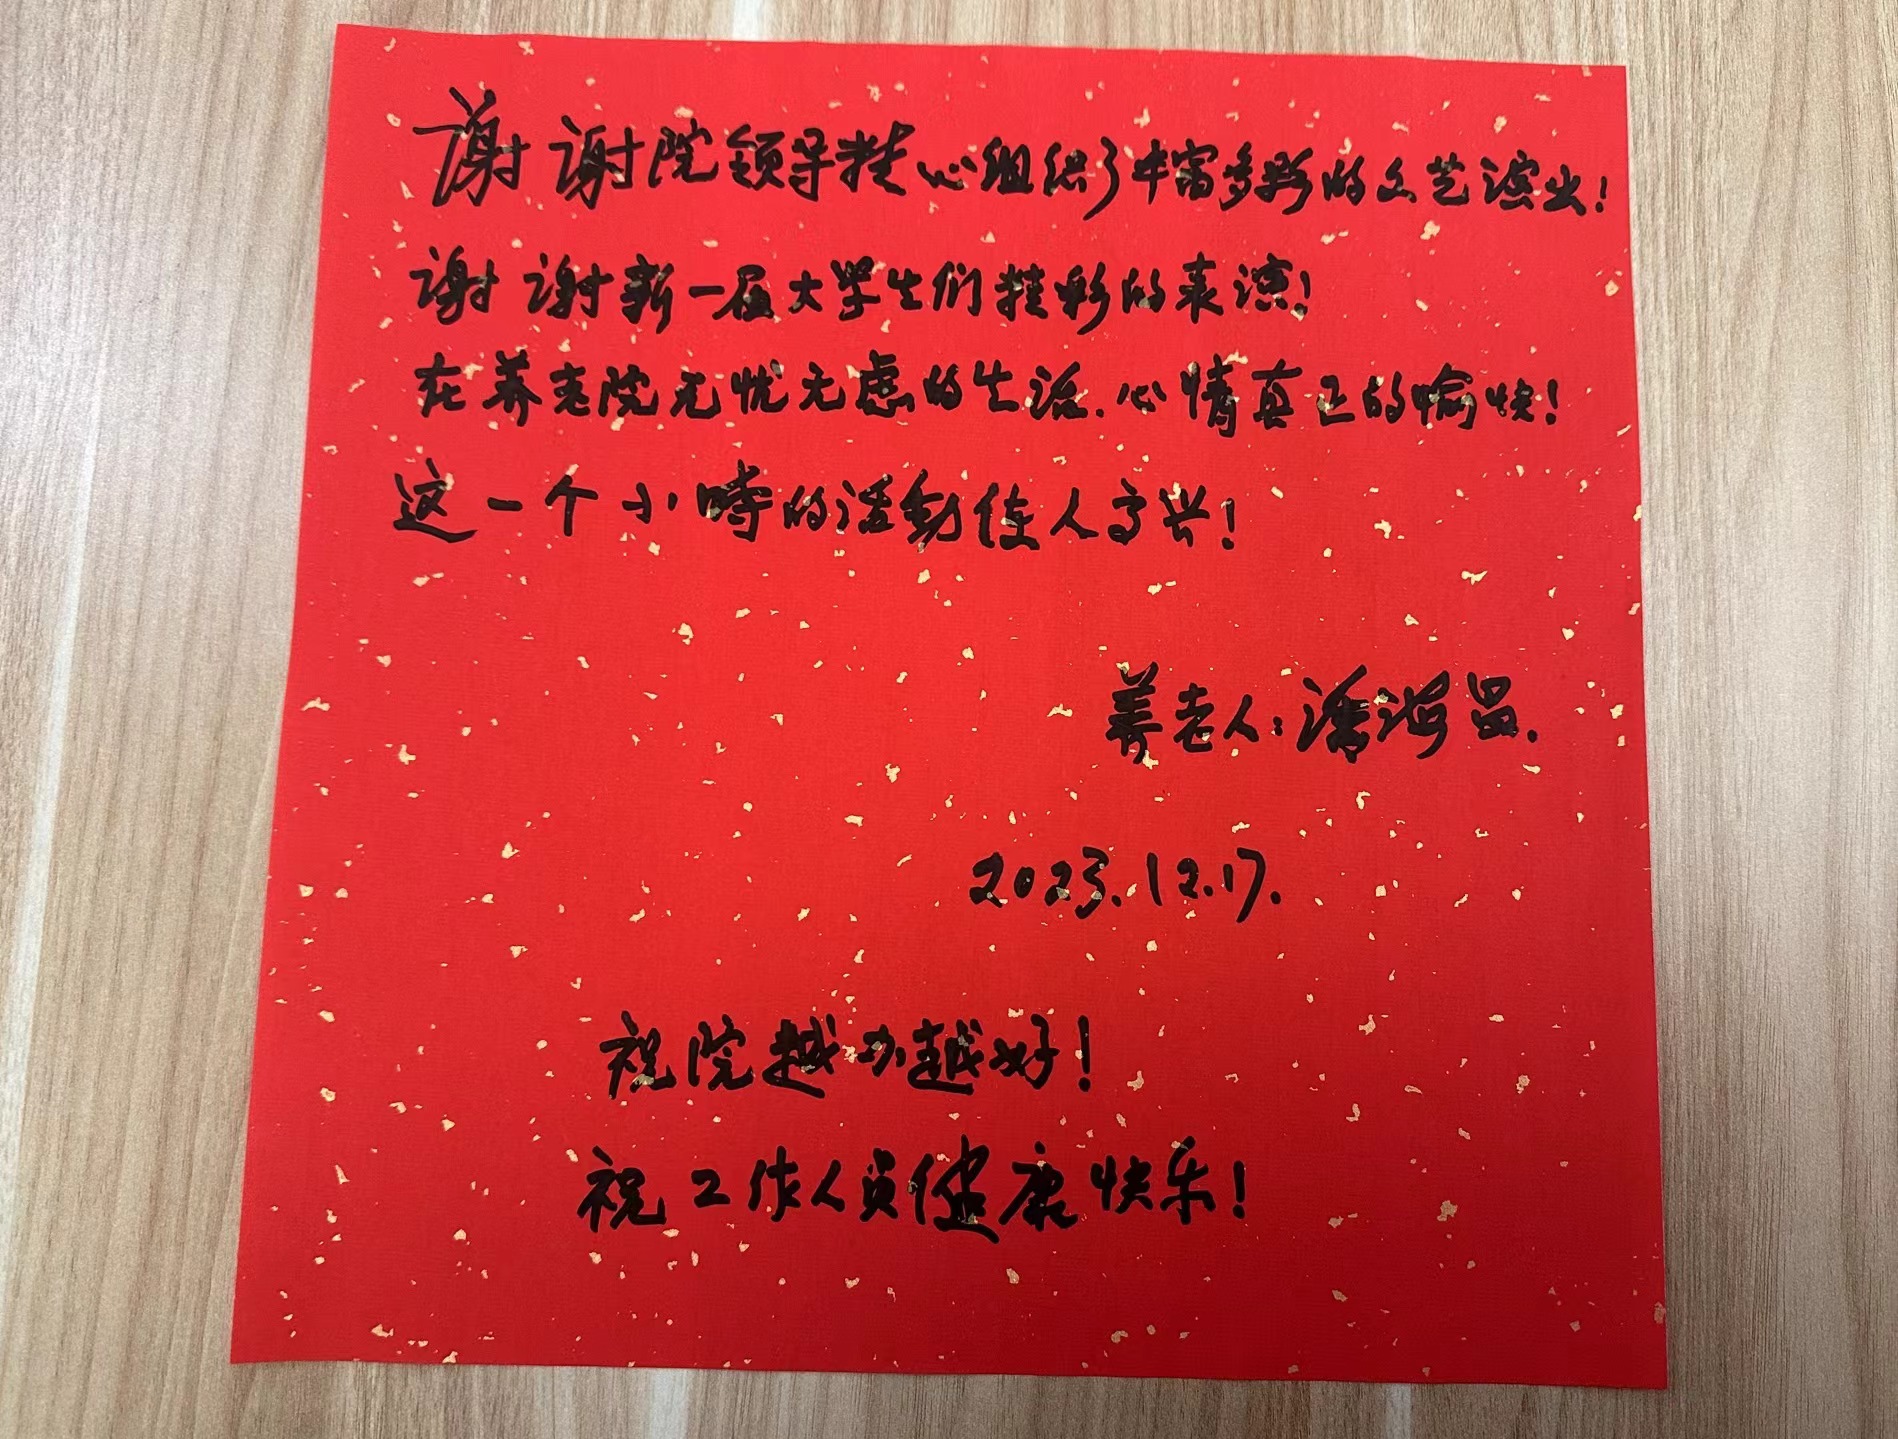 谢谢院领导精心组织了丰富多彩的文艺演出!
谢谢新一届大学生们精彩的表演!
在养老院无忧无虑的生活.心情真正的愉快!
这一个小时的活動使人高兴!
养老人:潘海昌.
2023.12.17.
祝院越办越好!
祝工作人员健康快乐!